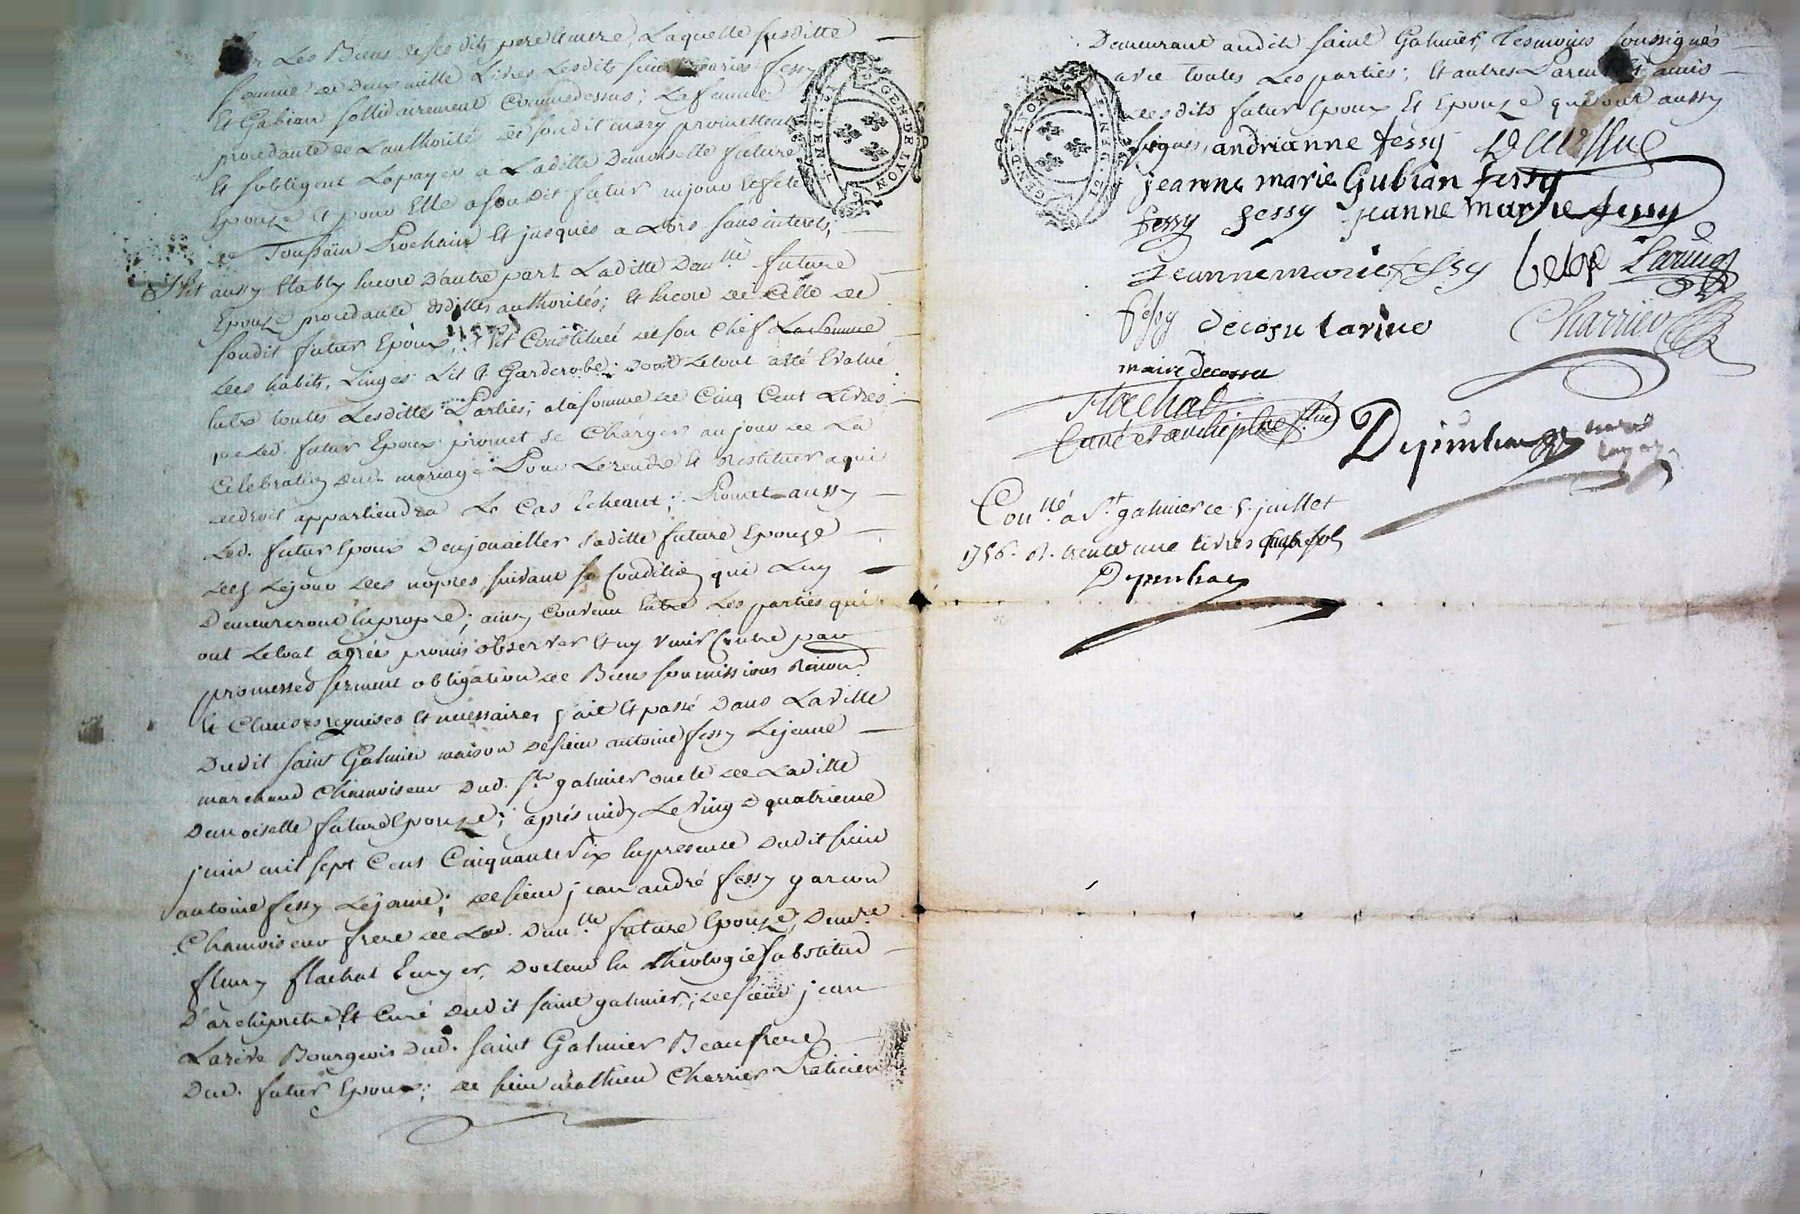 Les Biens de ses dits pere et mere, Laquelle susditte
somme de deux mille Livres Lesdits sieurs mariés fessy
Et Gubian sollidairement Comme dessus; La femme
procedante de L'authorité de son dit mary promettent
Et s'obligent La payer a Laditte Demoiselle future
Epouze Et pour Elle a son dit futur au jour Et fete
de Toussaint Prochain Et jusques a Lors sans interets,
S'est aussy Etably Encore D'autre part Laditte Dam.lle future
Epouze procedante desdittes authorités; Et Encore de Celle de
son dit futur Epoux, S'est Constitué de son Chef La somme
des habits, Linges Lit Et Garderobe; dont Le tout a eté Evalué
Entre toutes Lesdittes Parties, a la somme de Cinq Cent Livres
que Led. futur Epoux promet se Charger au jour de La
Celebration dud. mariage Pour Le rendre Et Restituer a qui
de droit appartiendra Le Cas Echeant; Promet aussy
Led. futur Epoux D'enjouailler Saditte future Epouze
Le jour des nopces suivant sa Condition qui Luy
Demeureront En propre; ainsy Convenu Entre Les parties qui
ont Le tout agréé promis observer Et ny venir Contre par
promesses serment obligation de Biens soumissions Renon.
Et Clauses requises Et necessaires fait Et passé Dans La ville
Dudit saint Galmier maison De sieur antoine fessy Lejeune
marchand Chamoiseur Dud. St galmier oncle de Laditte
Demoiselle future Epouze; aprés midy Le vingt quatrieme
juin mil sept Cens Cinquante six En presence Dudit sieur
antoine fessy Lejeune; de sieur jean andré fessy garcon
Chamoiseur frere de Lad. Dam.lle future Epouze, De m.re
fleury flachat Ecuyer, Docteur En theologie substitud
D'archiprêtre Et Curé Dudit saint galmier; de sieur jean
Larive Bourgeois Dud. saint Galmier Beaufrere
Dud. futur Epoux; de sieur mathieu Charrier Praticien
GEN. DE LYON
Demeurant audit saint Galmier, Tesmoins soussignés
avec toutes Les parties; Et autres Parents Et amis
desdits futur Epoux Et Epouze qui ont aussy
signés, andrianne fessy
jeanne marie Gubian fessy
fessy fessy jeanne marie fessy
Jeanne marie fessy Larive
fessy decosu larive Charrier
marie decosu
flachat
Curé et archiprêtre
Depinhac
Con.llé a St galmier ce 5 juillet
1756. R. trente une livres quatre sols
Depinhac